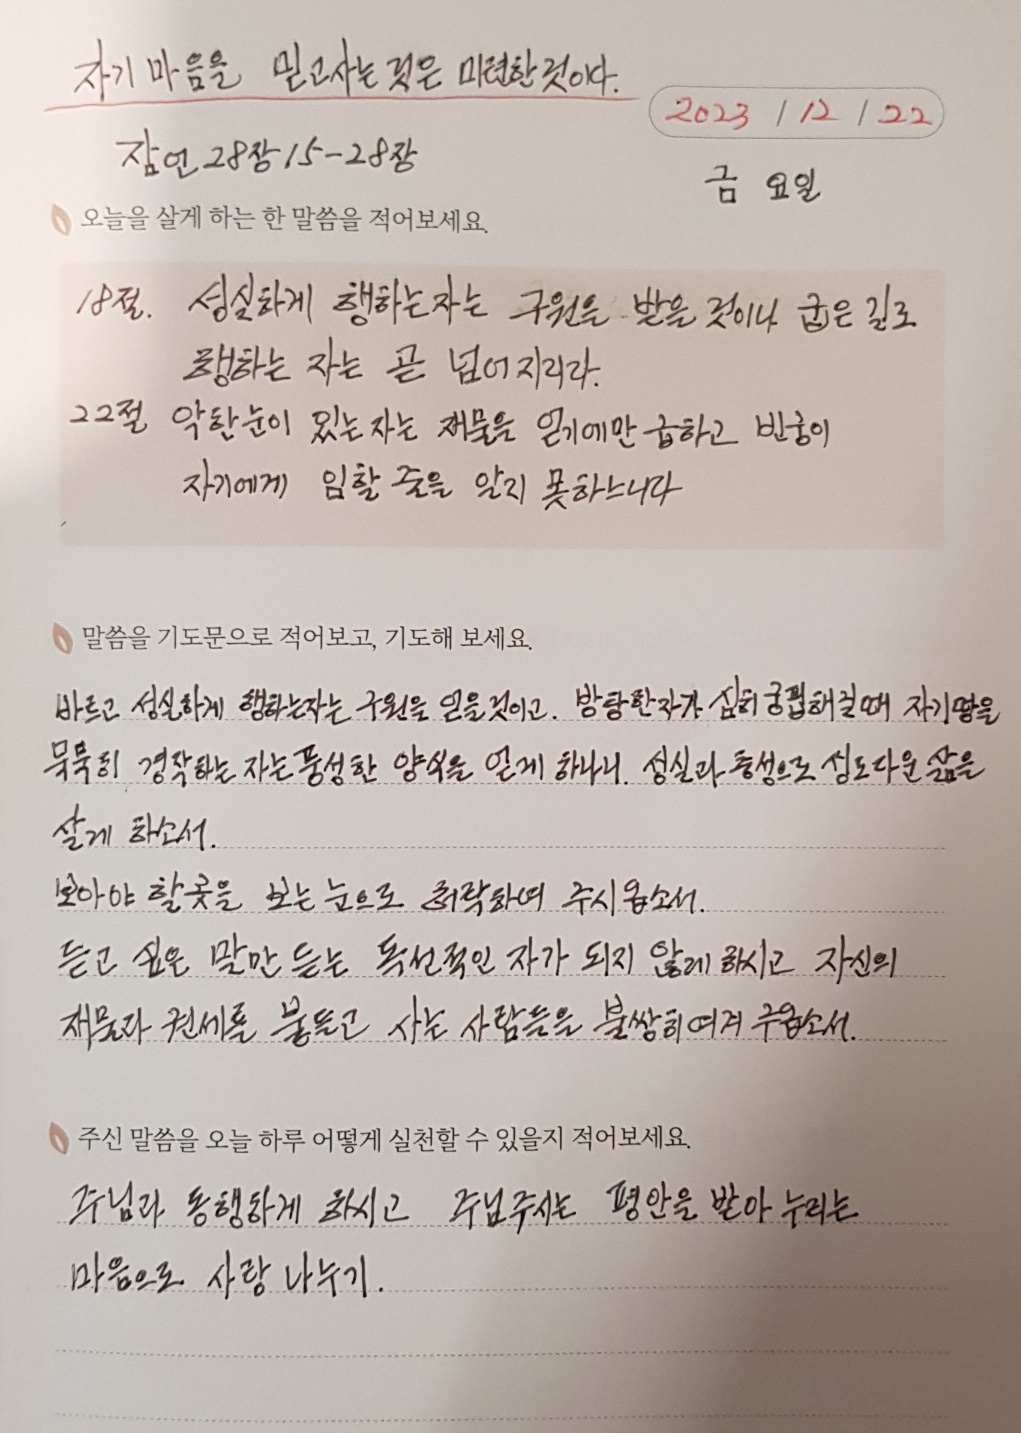 자기 마음을 믿고사는 것은 미련한것이다.
2023 / 12 / 22
잠언 28장 15-28장
금 요일
오늘을 살게 하는 한 말씀을 적어보세요.
18절. 성실하게 행하는자는 구원을 받을 것이나 굽은 길로
행하는 자는 곧 넘어지리라.
22절 악한눈이 있는자는 재물을 얻기에만 급하고 빈궁이
자기에게 임할 줄을 알지 못하느니라
말씀을 기도문으로 적어보고, 기도해 보세요.
바르고 성실하게 행하는자는 구원을 얻을것이고. 방탕한자가 심히궁핍해질때 자기땅을
묵묵히 경작하는 자는풍성한 양식을 얻게 하나니. 성실과 충성으로 성도다운 삶을
살게 하소서.
보아야 할곳을 보는 눈으로 허락하여 주시옵소서.
듣고 싶은 말만 듣는 독선적인 자가 되지 않게 하시고 자신의
재물과 권세를 붙들고 사는 사람들을 불쌍히여겨 주옵소서.
주신 말씀을 오늘 하루 어떻게 실천할 수 있을지 적어보세요.
주님과 동행하게 하시고 주님주시는 평안을 받아 누리는
마음으로 사랑 나누기.